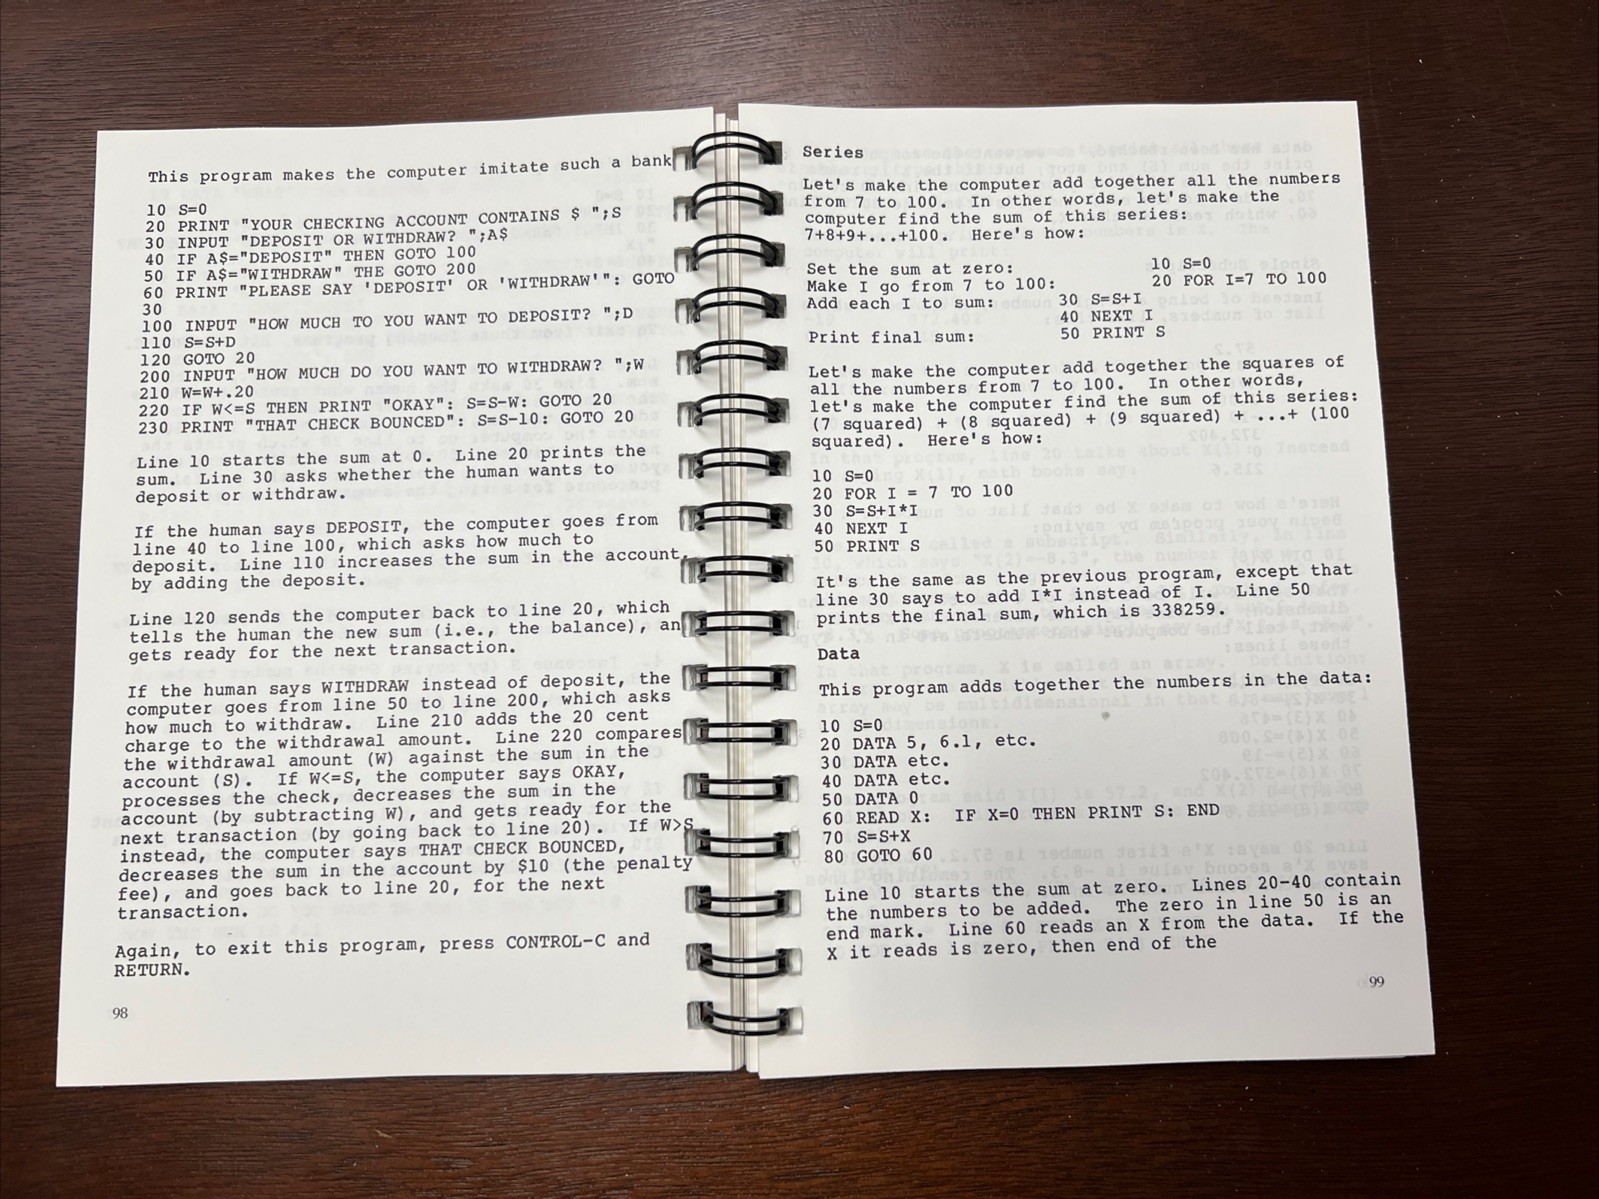 This program makes the computer imitate such a bank
10 S=0
20 PRINT "YOUR CHECKING ACCOUNT CONTAINS $ ";S
30 INPUT "DEPOSIT OR WITHDRAW? ";A$
40 IF A$="DEPOSIT" THEN GOTO 100
50 IF A$="WITHDRAW" THE GOTO 200
60 PRINT "PLEASE SAY 'DEPOSIT' OR 'WITHDRAW'": GOTO
30
100 INPUT "HOW MUCH TO YOU WANT TO DEPOSIT? ";D
110 S=S+D
120 GOTO 20
200 INPUT "HOW MUCH DO YOU WANT TO WITHDRAW? ";W
210 W=W+.20
220 IF W<=S THEN PRINT "OKAY": S=S-W: GOTO 20
230 PRINT "THAT CHECK BOUNCED": S=S-10: GOTO 20
Line 10 starts the sum at 0. Line 20 prints the
sum. Line 30 asks whether the human wants to
deposit or withdraw.
If the human says DEPOSIT, the computer goes from
line 40 to line 100, which asks how much to
deposit. Line 110 increases the sum in the account,
by adding the deposit.
Line 120 sends the computer back to line 20, which
tells the human the new sum (i.e., the balance), an
gets ready for the next transaction.
If the human says WITHDRAW instead of deposit, the
computer goes from line 50 to line 200, which asks
how much to withdraw. Line 210 adds the 20 cent
charge to the withdrawal amount. Line 220 compares
the withdrawal amount (W) against the sum in the
account (S). If W<=S, the computer says OKAY,
processes the check, decreases the sum in the
account (by subtracting W), and gets ready for the
next transaction (by going back to line 20). If W>S
instead, the computer says THAT CHECK BOUNCED,
decreases the sum in the account by $10 (the penalty
fee), and goes back to line 20, for the next
transaction.
Again, to exit this program, press CONTROL-C and
RETURN.
98
Series
Let's make the computer add together all the numbers
from 7 to 100. In other words, let's make the
computer find the sum of this series:
7+8+9+...+100. Here's how:
Set the sum at zero: 10 S=0
Make I go from 7 to 100: 20 FOR I=7 TO 100
Add each I to sum: 30 S=S+I
40 NEXT I
Print final sum: 50 PRINT S
Let's make the computer add together the squares of
all the numbers from 7 to 100. In other words,
let's make the computer find the sum of this series:
(7 squared) + (8 squared) + (9 squared) + ...+ (100
squared). Here's how:
10 S=0
20 FOR I = 7 TO 100
30 S=S+I*I
40 NEXT I
50 PRINT S
It's the same as the previous program, except that
line 30 says to add I*I instead of I. Line 50
prints the final sum, which is 338259.
Data
This program adds together the numbers in the data:
10 S=0
20 DATA 5, 6.1, etc.
30 DATA etc.
40 DATA etc.
50 DATA 0
60 READ X: IF X=0 THEN PRINT S: END
70 S=S+X
80 GOTO 60
Line 10 starts the sum at zero. Lines 20-40 contain
the numbers to be added. The zero in line 50 is an
end mark. Line 60 reads an X from the data. If the
X it reads is zero, then end of the
99